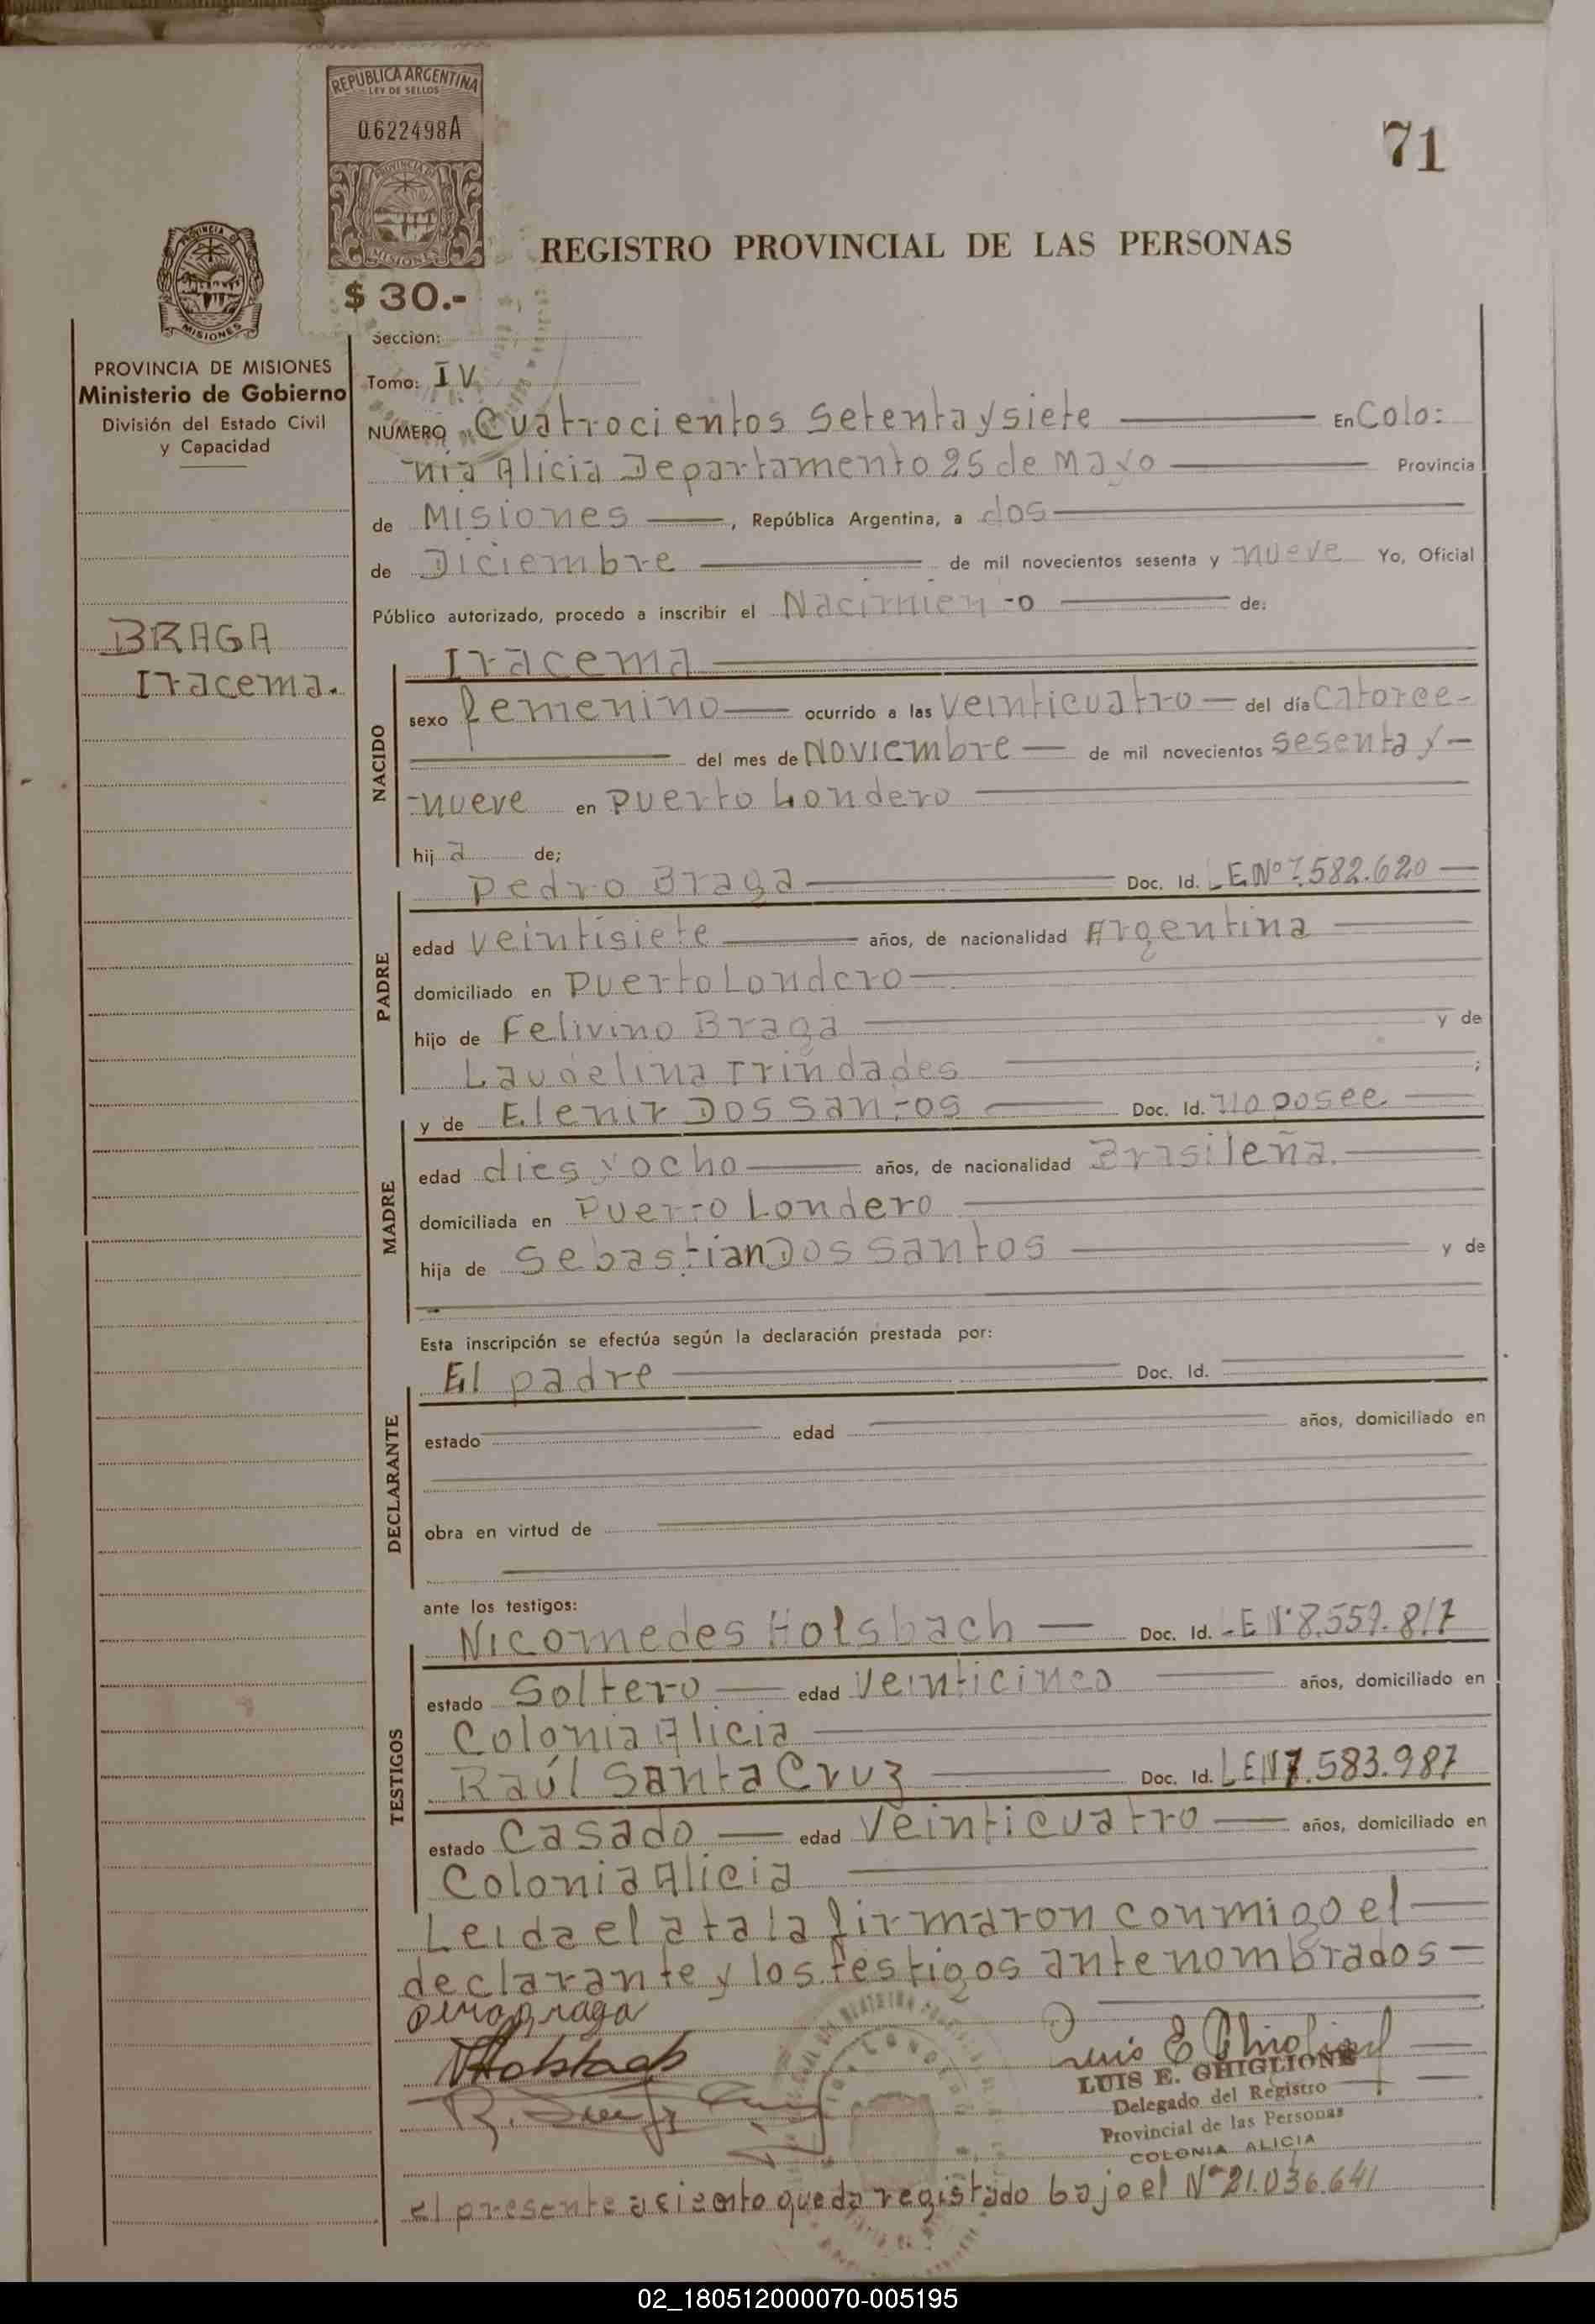 REPUBLICA ARGENTINA
LEY DE SELLOS
0.622498A
PROVINCIA DE
MISIONES
$ 30.-
71
REGISTRO PROVINCIAL DE LAS PERSONAS
PROVINCIA DE
MISIONES
PROVINCIA DE MISIONES
Ministerio de Gobierno
División del Estado Civil
y Capacidad
BRAGA
Iracema.
Sección:
Tomo: IV
NÚMERO Cuatrocientos Setenta y siete En Colo:
nia Alicia Departamento 25 de Mayo Provincia
de Misiones, República Argentina, a dos
de Diciembre de mil novecientos sesenta y nueve Yo, Oficial
Público autorizado, procedo a inscribir el Nacimien-o de:
Iracema
NACIDO
sexo femenino ocurrido a las veinticuatro del día Catorce-
del mes de Noviembre de mil novecientos sesenta y
-nueve en Puerto Londero
hija de;
Pedro Braga Doc. Id. LE Nº 7.582.620
PADRE
edad veintisiete años, de nacionalidad Argentina
domiciliado en Puerto Londero
hijo de Felivino Braga y de
Laudelina Trindades ;
y de Elenir Dos San-os Doc. Id. no posee
MADRE
edad dies y ocho años, de nacionalidad Brasileña.
domiciliada en Puer-o Londero
hija de Sebastian Dos Santos y de
Esta inscripción se efectúa según la declaración prestada por:
El padre Doc. Id.
DECLARANTE
estado edad años, domiciliado en
obra en virtud de
ante los testigos:
Nicomedes Holsbach Doc. Id. LE Nº 8.559.817
TESTIGOS
estado Soltero edad Veinticinco años, domiciliado en
Colonia Alicia
Raúl Santa Cruz Doc. Id. LE Nº 7.583.987
estado Casado edad Veinticuatro años, domiciliado en
Colonia Alicia
Leida el ata la firmaron conmigo el
declarante y los testigos antenombrados
NHolsbach
LUIS E. GHIGLIONE
Delegado del Registro
Provincial de las Personas
COLONIA ALICIA
el presente aciento queda registado bajo el Nº 21.036.641
02_180512000070-005195